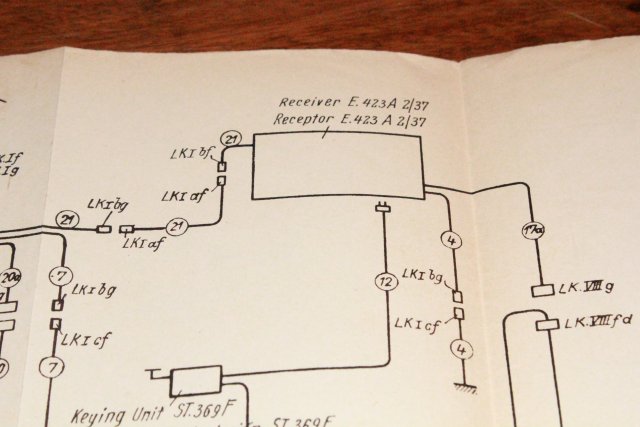 Receiver E.423A 2/37
Receptor E.423 A 2/37
21
LKI bf
LKI af
LKI bg
21
LKI af
21
4
17a
20a
7
LKI bg
12
LKI bg
LK.VIII g
LKI cf
LKI cf
LK.VIII f d
7
4
Keying Unit ST.369F
ST.369F